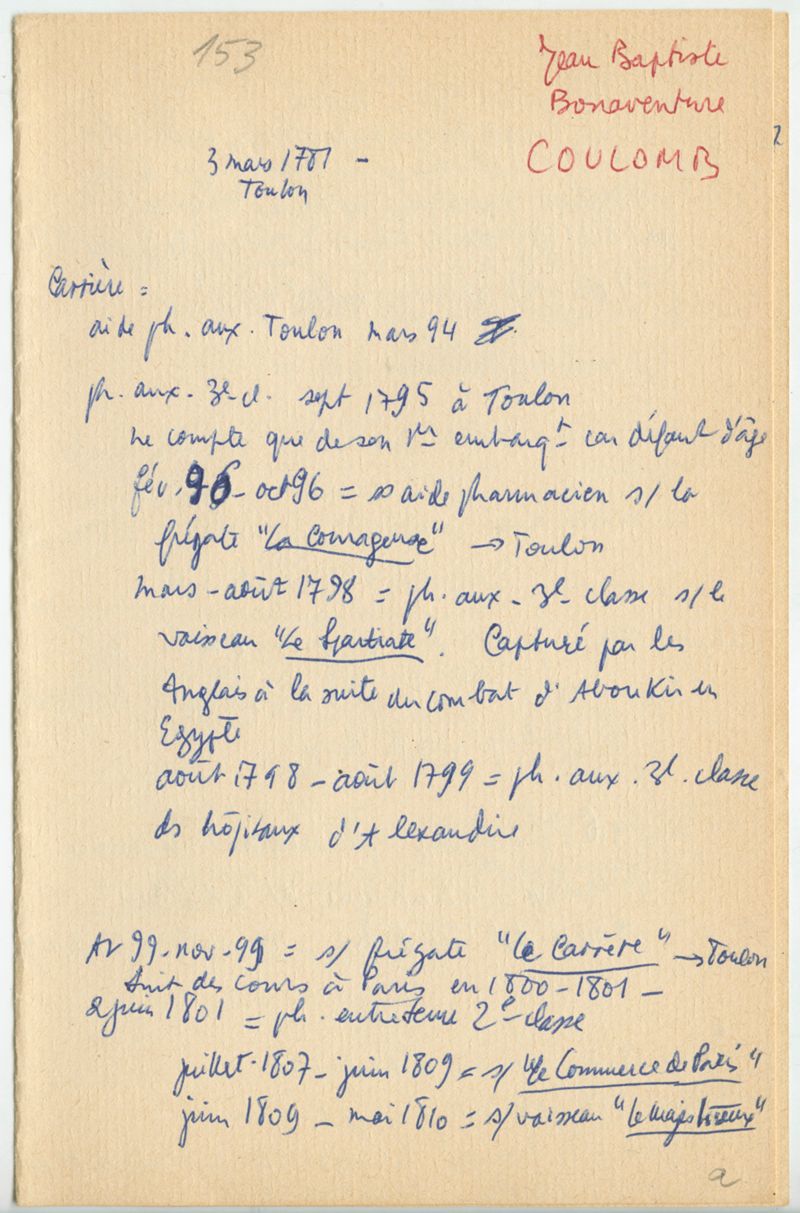 153
Jean Baptiste
Bonaventure
COULOMB
2
3 mars 1781 -
Toulon
Carrière =
aide ph. aux. Toulon mars 94
ph. aux. 3e cl. sept 1795 à Toulon
ne compte que de son 1er embarqt car défaut d'âge
fév. 96 - oct 96 = ss aide pharmacien s/ la
frégate "La Courageuse" → Toulon
mars - août 1798 = ph. aux - 3e classe s/ le
vaisseau "Le Spartiate". Capturé par les
Anglais à la suite du combat d'Aboukir en
Egypte
août 1798 - août 1799 = ph. aux. 3e. classe
ds hôpitaux d'Alexandrie
99 - nov - 99 = s/ frégate "Le Carrère" → Toulon
Suit des cours à Paris en 1800 - 1801 -
juin 1801 = ph. entretenu 2e classe
juillet 1807 - juin 1809 = s/ "Le Commerce de Paris"
juin 1809 - mai 1810 = s/ vaisseau "Le Majestueux"
a